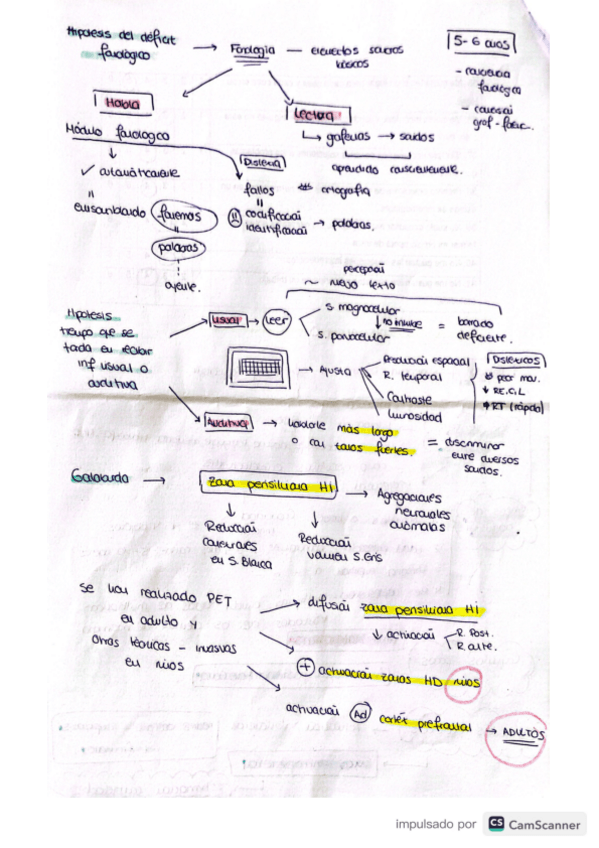 Hipótesis del déficit
fonológico → Fonología — elementos sonoros
básicos
5-6 años
- conciencia
fonológica
- conversión
graf-fonic.
Habla
Lectura
↳ grafemas → sonidos
aprendido conscientemente.
Módulo fonológico
✓ automáticamente
ensamblando fonemas
palabras
oyente.
Dislexia
fallos ortografía
codificación
identificación → palabras.
Hipótesis
tiempo que se
tarda en recibir
inf visual o
auditiva
percepción
~ nuevo texto
visual → Leer
S. magnocelular
↓ no inhibe = borrado
S. parvocelular deficiente.
→ Ajusta
Resolución espacial
R. temporal
Contraste
Luminosidad
Disléxicos
peor mov.
↓ RE.C.L
RT (rápida)
Auditiva → hablarle más lago
o con tonos fuertes. = discriminar
entre diversos
sonidos.
Galaburda → zona perisilviana HI → Agregaciones
neuronales
anómalas
Reducción
conexiones
en S. Blanca
Reducción
volumen S. Gris
Se han realizado PET
en adulto y
otras técnicas - invasivas
en niños
→ difusión zona perisilviana HI
↓ activación R. Post.
R. ante.
+ activación zonas HD niños
activación Ad cortex prefrontal → ADULTOS
impulsado por CS CamScanner